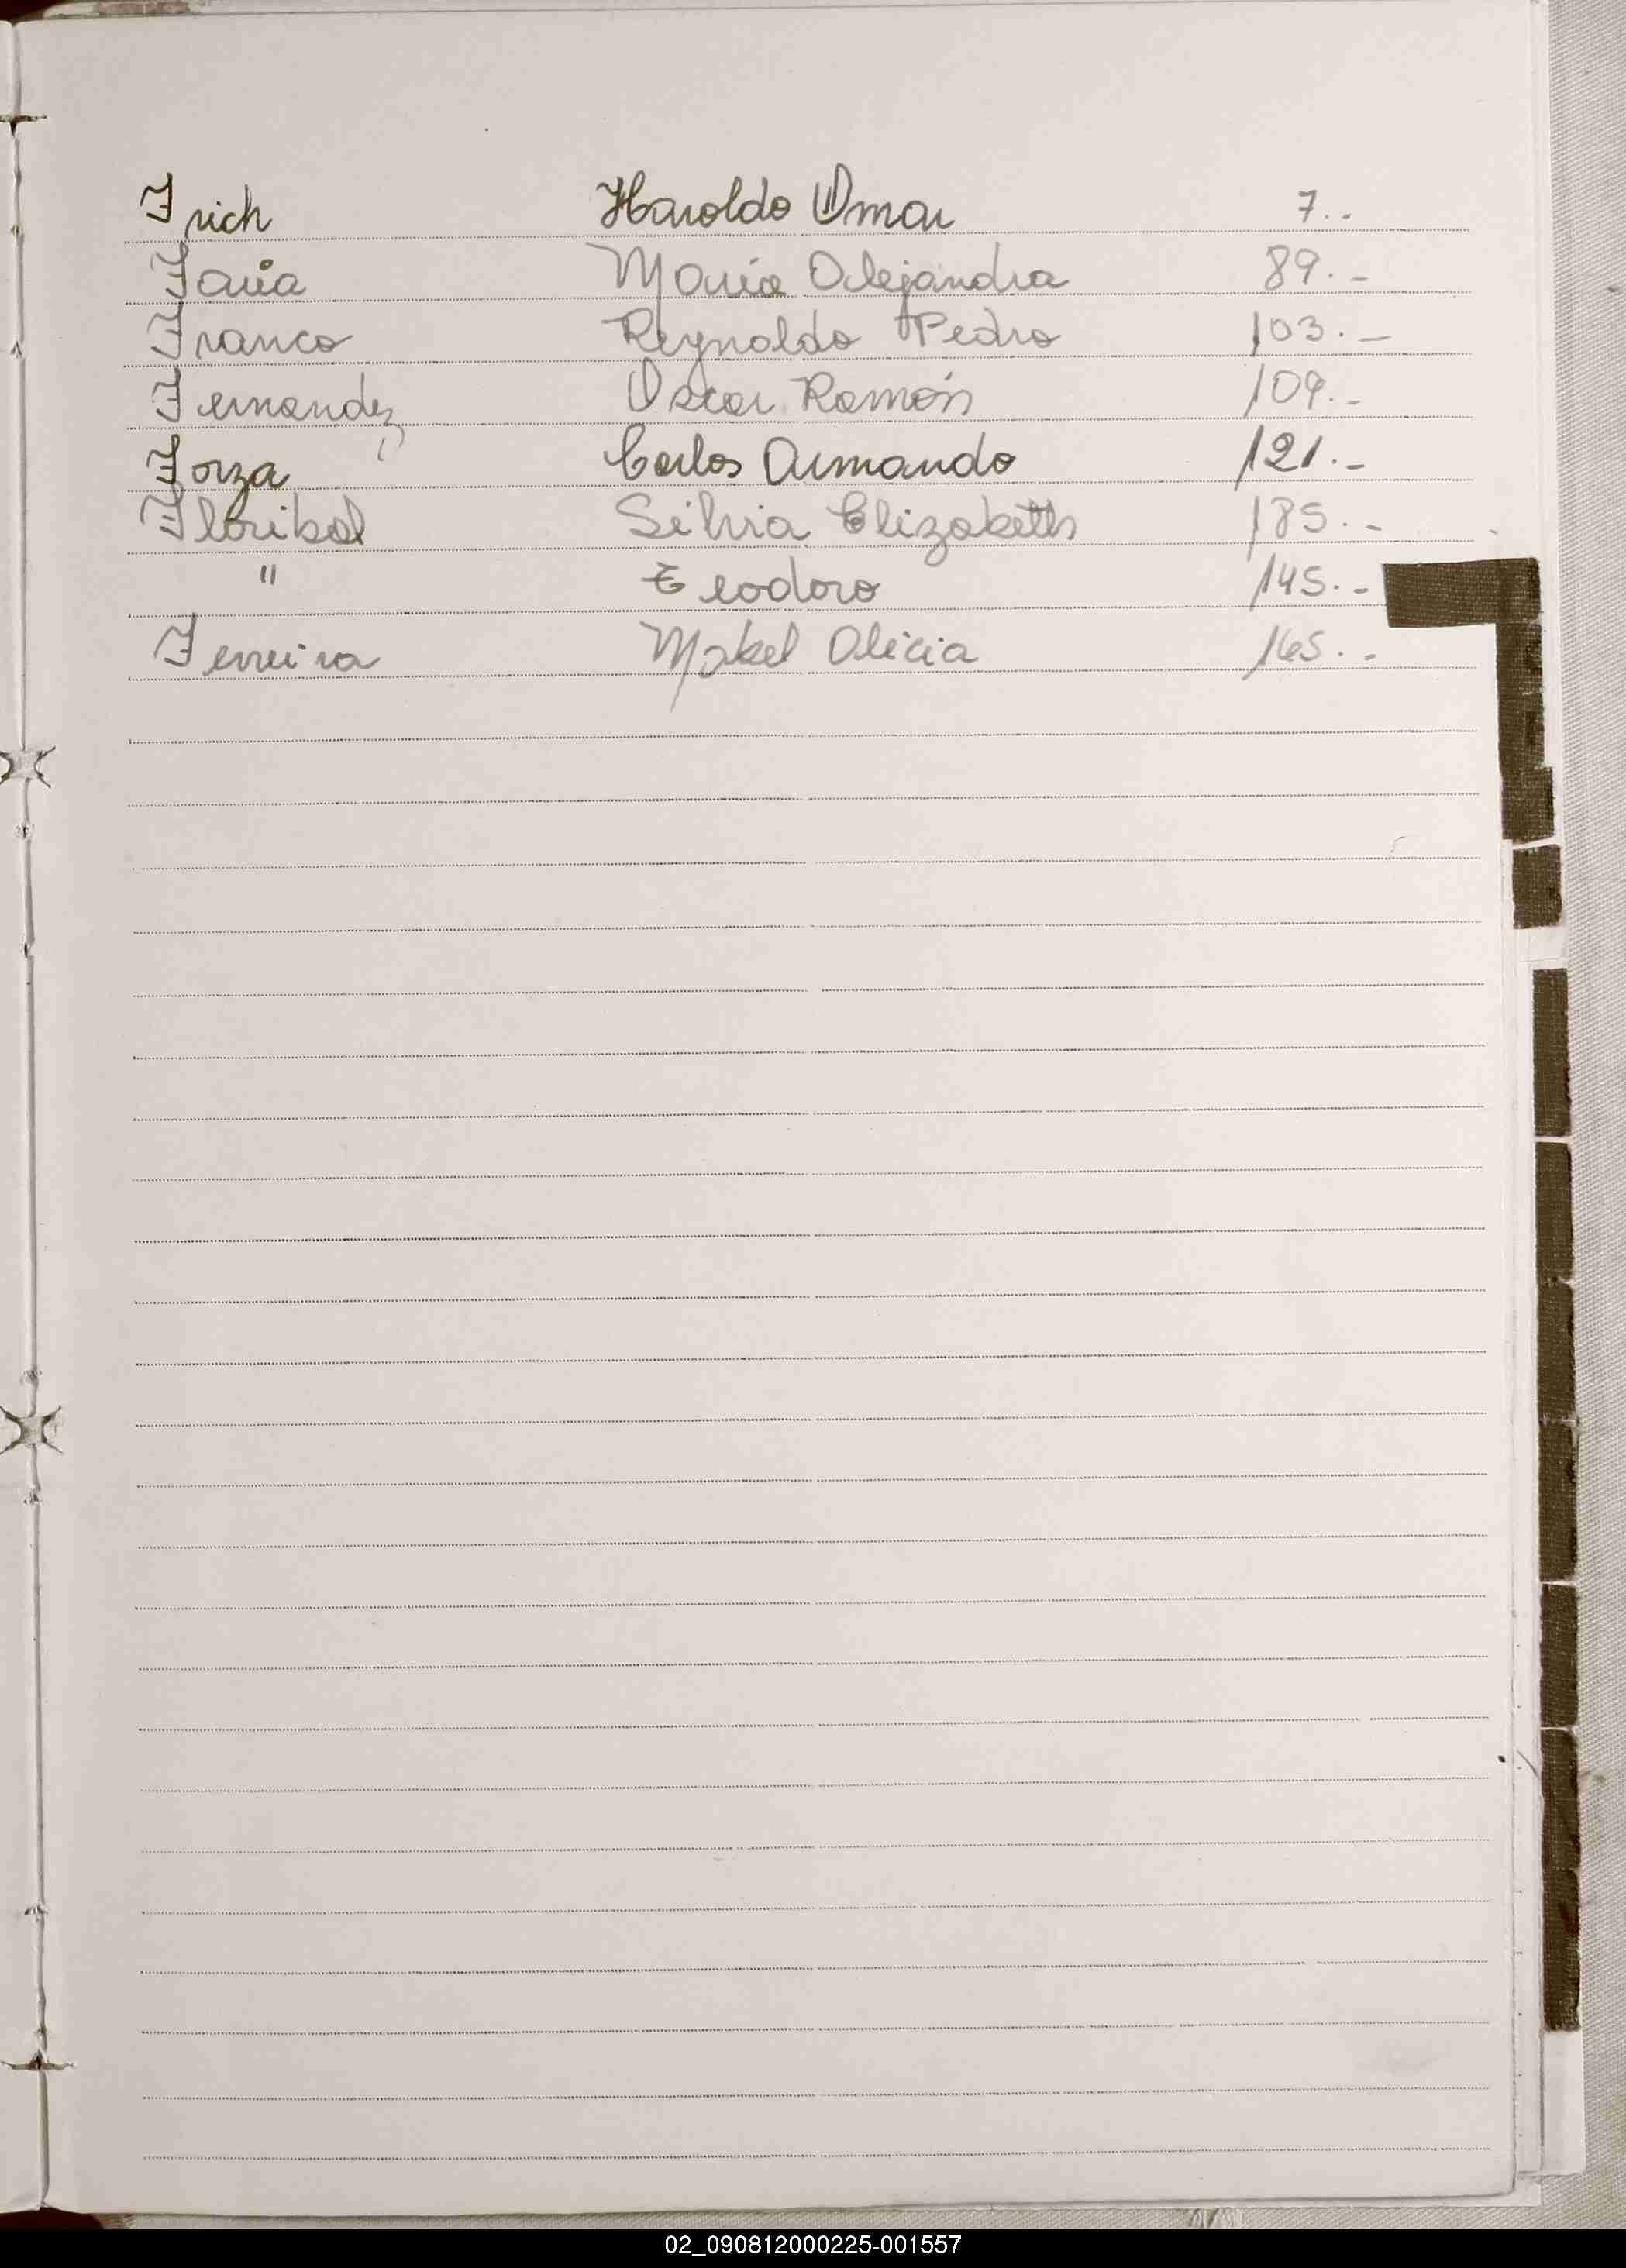 Frich Haroldo Omar 7.-
Faria María Alejandra 89.-
Franco Reynoldo Pedro 103.-
Fernandez Oscar Ramón 109.-
Forza Carlos Armando 121.-
Floribal Silvia Elizabeth 185.-
" Teodoro 145.-
Ferreira Mabel Alicia 165.-
02_090812000225-001557